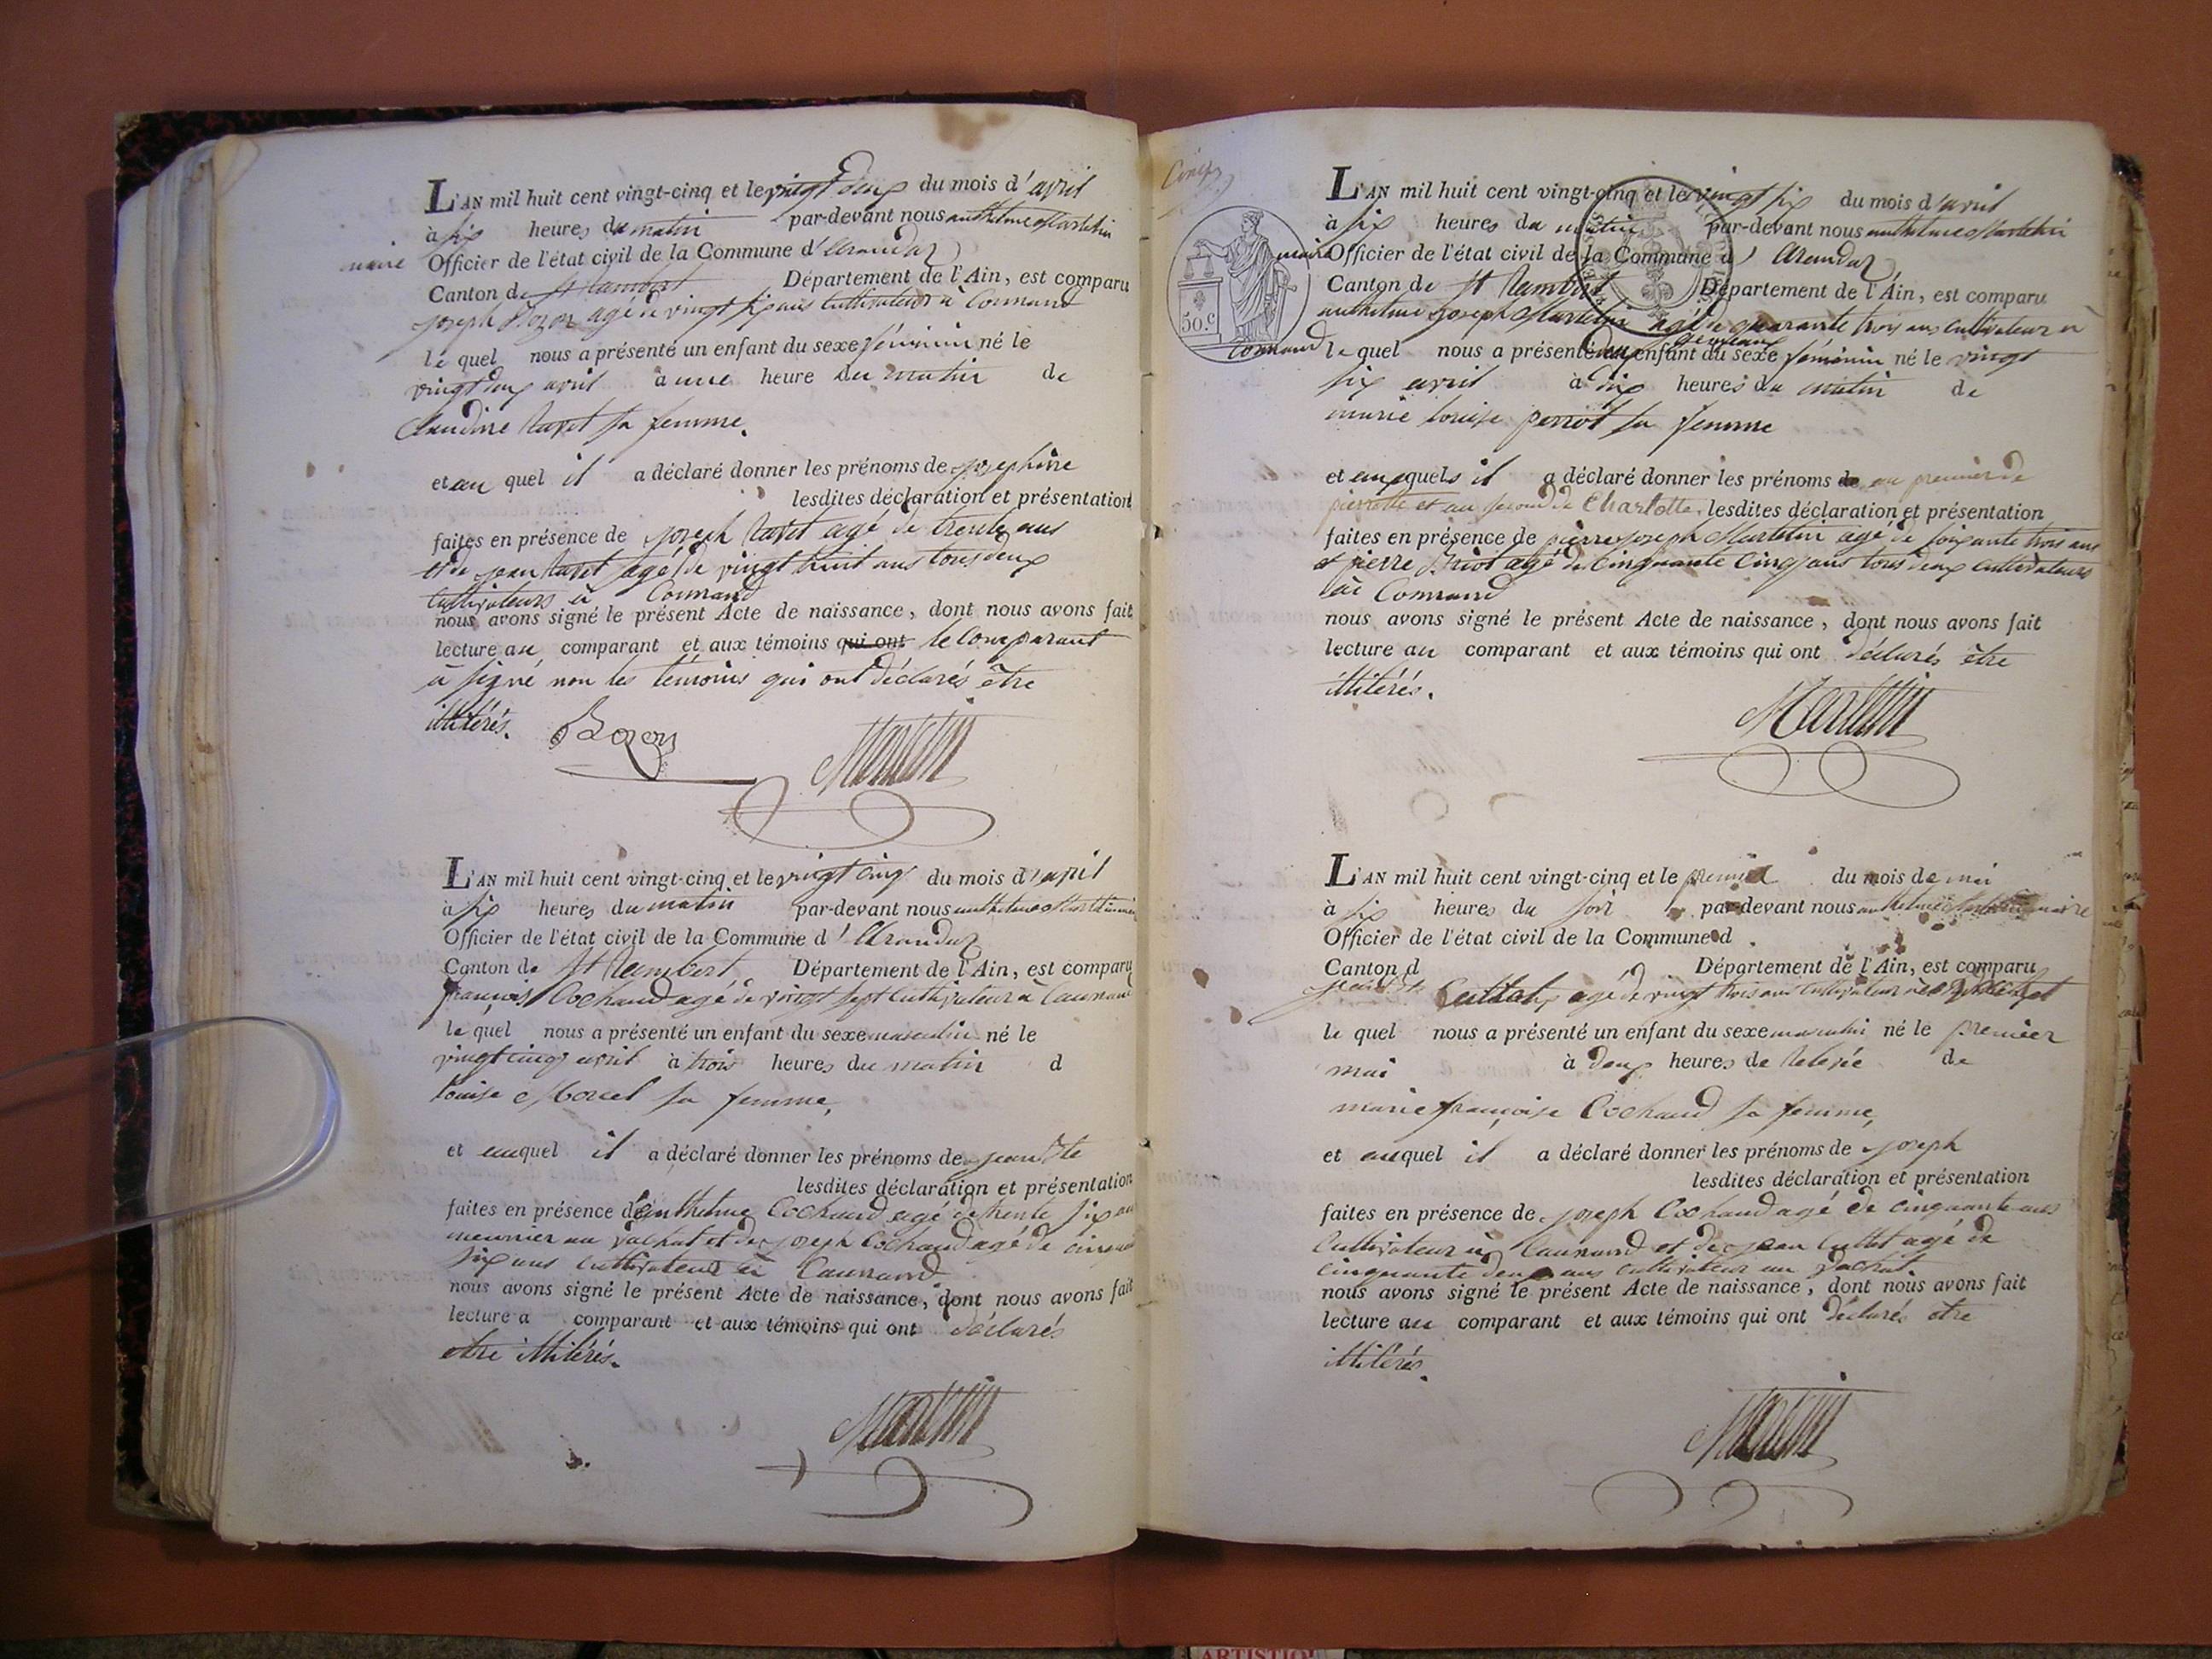 L'AN mil huit cent vingt-cinq et le vingt deux du mois d'avril
à six heures du matin par-devant nous anthelme Martelin
maire Officier de l'état civil de la Commune d'Arandaz
Canton de St Rambert Département de l'Ain, est comparu
joseph Bozon agé de vingt six ans Cultivateur à Connand
le quel nous a présenté un enfant du sexe féminin né le
vingt deux avril à une heure du matin de
Claudine ravet sa femme.
et au quel il a déclaré donner les prénoms de josephine
lesdites déclaration et présentation
faites en présence de joseph ravet agé de trente ans
et de jean ravet agé de vingt huit ans tous deux
cultivateurs à Connand
nous avons signé le présent Acte de naissance, dont nous avons fait
lecture au comparant et aux témoins qui ont le Comparant
à signé non les témoins qui ont déclarés être
illitérés.
Bozon Martelin
L'AN mil huit cent vingt-cinq et le vingt cinq du mois d'avril
à six heures du matin par-devant nous anthelme
Officier de l'état civil de la Commune d'Arandaz
Canton de St Rambert Département de l'Ain, est comparu
françois Cochaud agé de vingt sept Cultivateur à Caunand
le quel nous a présenté un enfant du sexe masculin né le
vingt cinq avril à trois heures du matin d
Louise Morcel sa femme,
et auquel il a déclaré donner les prénoms de jean Bte
lesdites déclaration et présentation
faites en présence d'anthelme Cochaud agé de trente six an
meunier au et de joseph Cochaud agé de
six ans cultivateur à Caunand
nous avons signé le présent Acte de naissance, dont nous avons fait
lecture a comparant et aux témoins qui ont déclarés
être illitérés.
Martelin
50.c
L'AN mil huit cent vingt-cinq et le vingt six du mois d'avril
à six heures du matin par-devant nous anthelme Martelin
maire Officier de l'état civil de la Commune d'Arandaz
Canton de St Rambert Département de l'Ain, est comparu
anthelme joseph Martelin agé de quarante trois ans cultivateur à
Connand le quel nous a présenté deux enfant jumeaux du sexe féminin né le vingt
six avril à dix heures du matin de
marie louise perrot sa femme
et auxquels il a déclaré donner les prénoms de au premier de
pierrette et au second de Charlotte. lesdites déclaration et présentation
faites en présence de pierre joseph Martelin agé de soixante trois ans
et pierre agé de Cinquante Cinq ans tous deux cultivateurs
à Connand
nous avons signé le présent Acte de naissance, dont nous avons fait
lecture au comparant et aux témoins qui ont déclarés être
illitérés.
Martelin
L'AN mil huit cent vingt-cinq et le premier du mois de mai
à six heures du soir par-devant nous anthelme maire
Officier de l'état civil de la Commune d
Canton d Département de l'Ain, est comparu
agé de vingt trois ans Cultivateur
le quel nous a présenté un enfant du sexe masculin né le premier
mai à deux heures de relevée de
marie françoise Cochaud sa femme,
et auquel il a déclaré donner les prénoms de joseph
lesdites déclaration et présentation
faites en présence de joseph Cochaud agé de cinquante ans
Cultivateur à Caunand et de jean agé de
cinquante deux ans cultivateur au
nous avons signé le présent Acte de naissance, dont nous avons fait
lecture au comparant et aux témoins qui ont déclarés être
illitérés.
Martelin